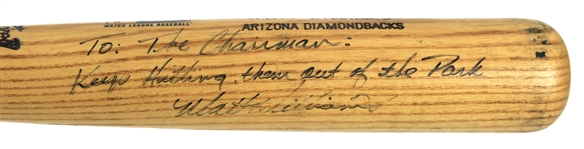 MAJOR LEAGUE BASEBALL
ARIZONA DIAMONDBACKS
To: The Chairman:
Keep Hitting them out of the Park
Matt Williams